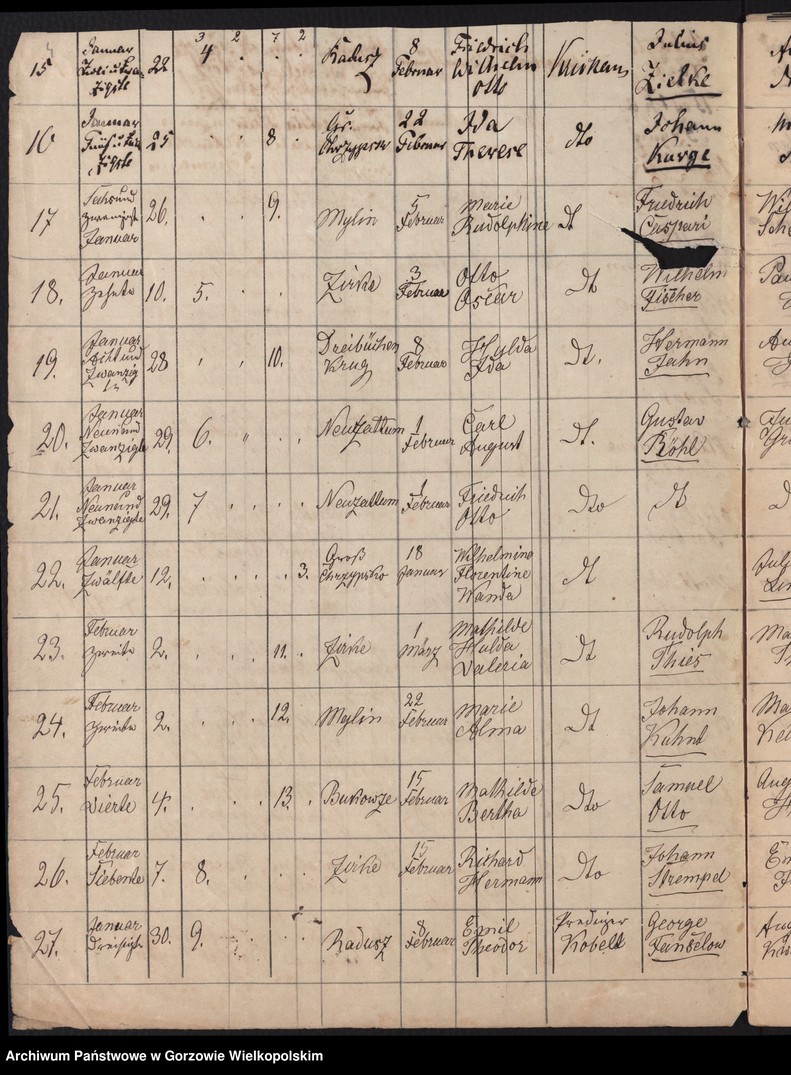 3 2 7 2
15 Januar 22 4 . . . Radusz 8 Februar Friedrich Wilhelm Otto Julius Zielke
16 Januar 25 . . 8 . Gr. Chrzypsko 22 Februar Ida Therese dto Johann Kurge
17 Sechsund zwanzigst Januar 26. . . 9. Mylin 5 Februar Marie Rudolphine dt Friedrich Caspari
18. Januar Zehnte 10. 5. . . Zirke 3 Februar Otto Oscar dt Wilhelm Fischer
19. Januar Acht und Zwanzig 28 10. Dreibuchen Krug 8 Februar Hulda Ida dt. Hermann Jahn
20. Januar Neunund Zwanzigte 29. 6. " . . Neuzattum 1 Februar Carl August dt. Gustav Röhl
21. Januar Neunund Zwanzigste 29. 7 . . . . Neuzattum 1 Februar Friedrich Otto dto dt
22. Januar Zwölfte 12. . . . 3. Groß Chrzypsko 18 Januar Wilhelmine Florentine Wanda dt
23. Februar zweite 2. . . 11. . Zirke 1 März Mathilde Hulda Valeria dt Rudolph Thies
24. Februar zweite 2. . . 12. Mylin 22 Februar Marie Alma dt Johann Kuhnt
25. Februar Vierte 4. . . 13. . Bukowze 15 Februar Mathilde Bertha dto Samuel Otto
26. Februar Siebente 7. 8. . . . Zirke 15 Februar Richard Hermann dto Johann Strempel
27. Januar Dreisigste 30. 9. . . Radusz 8 Februar Emil Theodor Prediger Kobelt George Fanselow
Archiwum Państwowe w Gorzowie Wielkopolskim